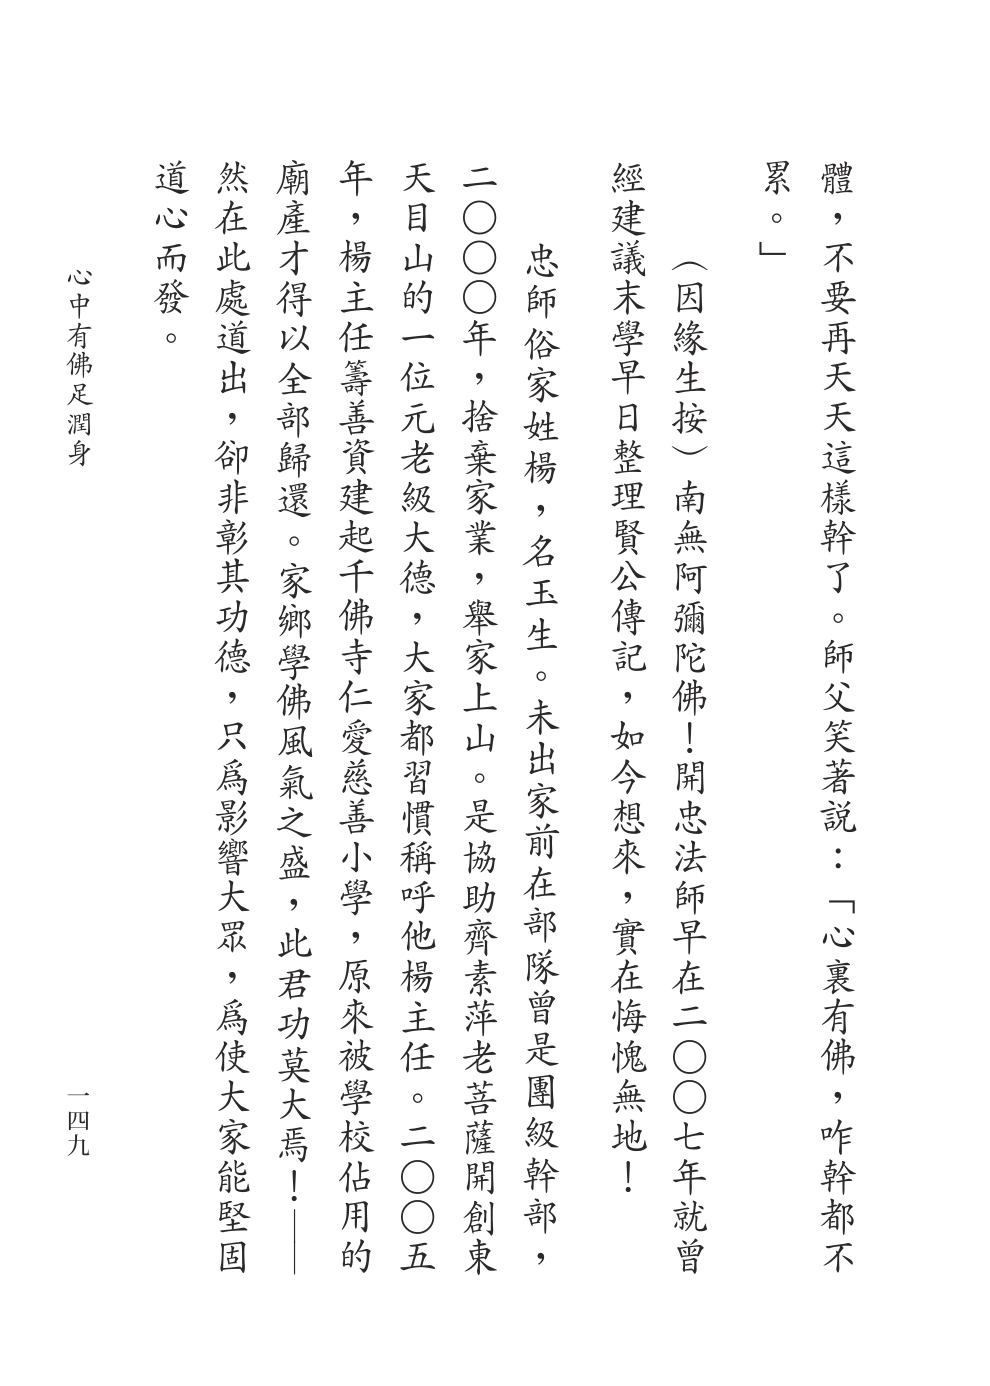 體，不要再天天這樣幹了。師父笑著説：「心裏有佛，咋幹都不
累。」
（因緣生按）南無阿彌陀佛！開忠法師早在二〇〇七年就曾
經建議末學早日整理賢公傳記，如今想來，實在悔愧無地！
忠師俗家姓楊，名玉生。未出家前在部隊曾是團級幹部，
二〇〇〇年，捨棄家業，舉家上山。是協助齊素萍老菩薩開創東
天目山的一位元老級大德，大家都習慣稱呼他楊主任。二〇〇五
年，楊主任籌善資建起千佛寺仁愛慈善小學，原來被學校佔用的
廟產才得以全部歸還。家鄉學佛風氣之盛，此君功莫大焉！——
然在此處道出，卻非彰其功德，只爲影響大眾，爲使大家能堅固
道心而發。
心中有佛足潤身
一四九